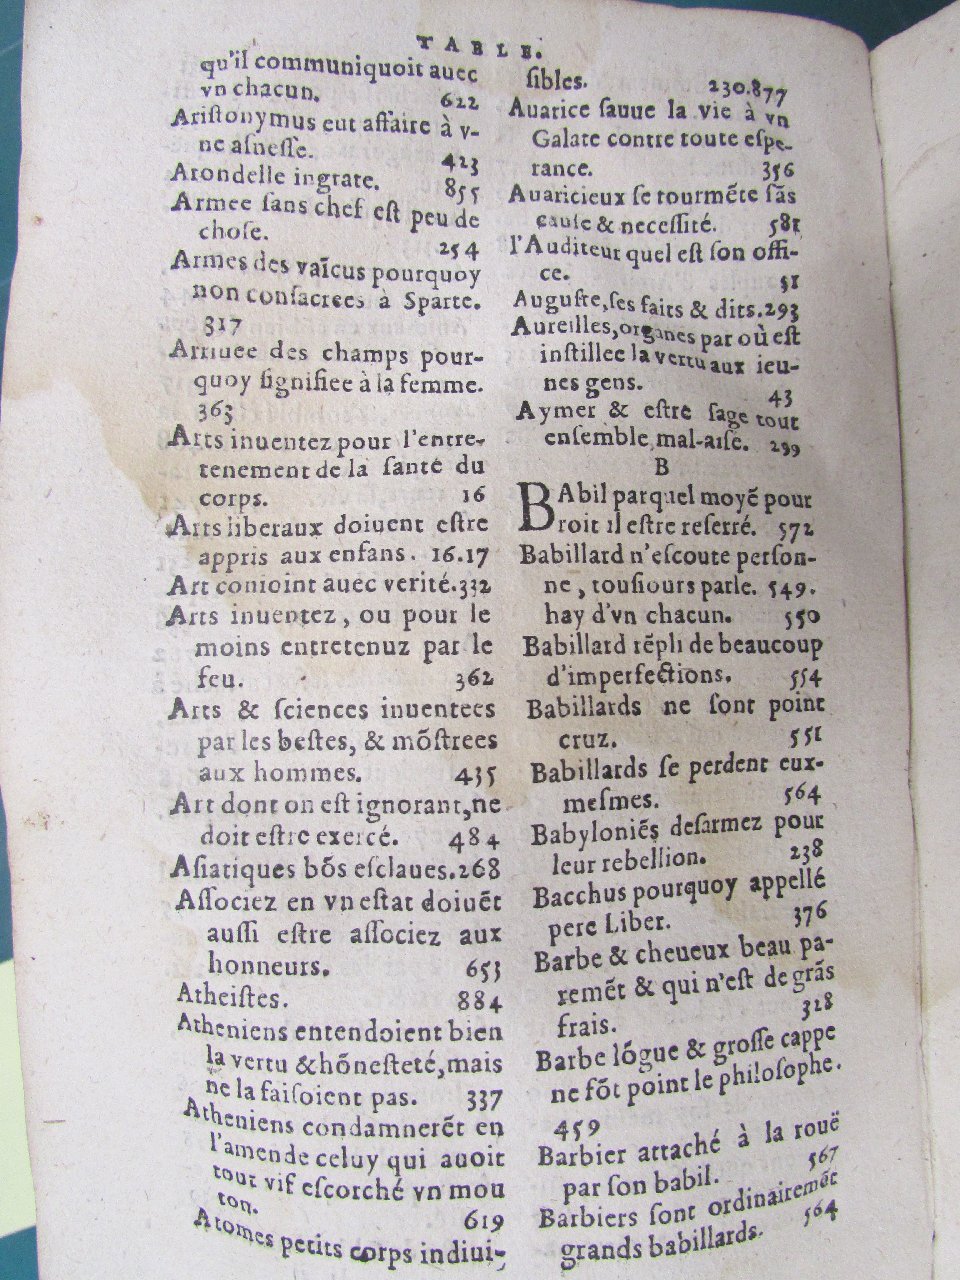 TABLE.
qu'il communiquoit auec
vn chacun. 622
Ariſtonymus eut affaire à v-
ne aſneſſe. 423
Arondelle ingrate. 855
Armee ſans chef eſt peu de
choſe. 254
Armes des vaĩcus pourquoy
non conſacrees à Sparte.
317
Arriuee des champs pour-
quoy ſignifiee à la femme.
363
Arts inuentez pour l'entre-
tenement de la ſanté du
corps. 16
Arts liberaux doiuent eſtre
appris aux enfans. 16.17
Art conioint auec verité.332
Arts inuentez, ou pour le
moins entretenuz par le
feu. 362
Arts & ſciences inuentees
par les beſtes, & mõſtrees
aux hommes. 435
Art dont on eſt ignorant, ne
doit eſtre exercé. 484
Aſiatiques bõs eſclaues.268
Aſſociez en vn eſtat doiuẽt
auſſi eſtre aſſociez aux
honneurs. 653
Atheiſtes. 884
Atheniens entendoient bien
la vertu & hõneſteté, mais
ne la faiſoient pas. 337
Atheniens condamnerẽt en
l'amende celuy qui auoit
tout vif eſcorché vn mou
ton. 619
Atomes petits corps indiui-
ſibles. 230.877
Auarice ſauue la vie à vn
Galate contre toute eſpe-
rance. 356
Auaricieux ſe tourmẽte ſãs
cauſe & neceſſité. 581
l'Auditeur quel eſt ſon offi-
ce. 51
Auguſte, ſes faits & dits.293
Aureilles, organes par où eſt
inſtillee la vertu aux ieu-
nes gens. 43
Aymer & eſtre ſage tout
enſemble mal-aiſé. 299
B
BAbil par quel moyẽ pour
roit il eſtre reſerré. 572
Babillard n'eſcoute perſon-
ne, touſiours parle. 549.
hay d'vn chacun. 550
Babillard rẽpli de beaucoup
d'imperfections. 554
Babillards ne ſont point
cruz. 551
Babillards ſe perdent eux-
meſmes. 564
Babyloniẽs deſarmez pour
leur rebellion. 238
Bacchus pourquoy appellé
pere Liber. 376
Barbe & cheueux beau pa-
remẽt & qui n'eſt de grãs
frais. 328
Barbe lõgue & groſſe cappe
ne fõt point le philoſophe.
459
Barbier attaché à la rouë
par ſon babil. 567
Barbiers ſont ordinairemẽt
grands babillards. 564